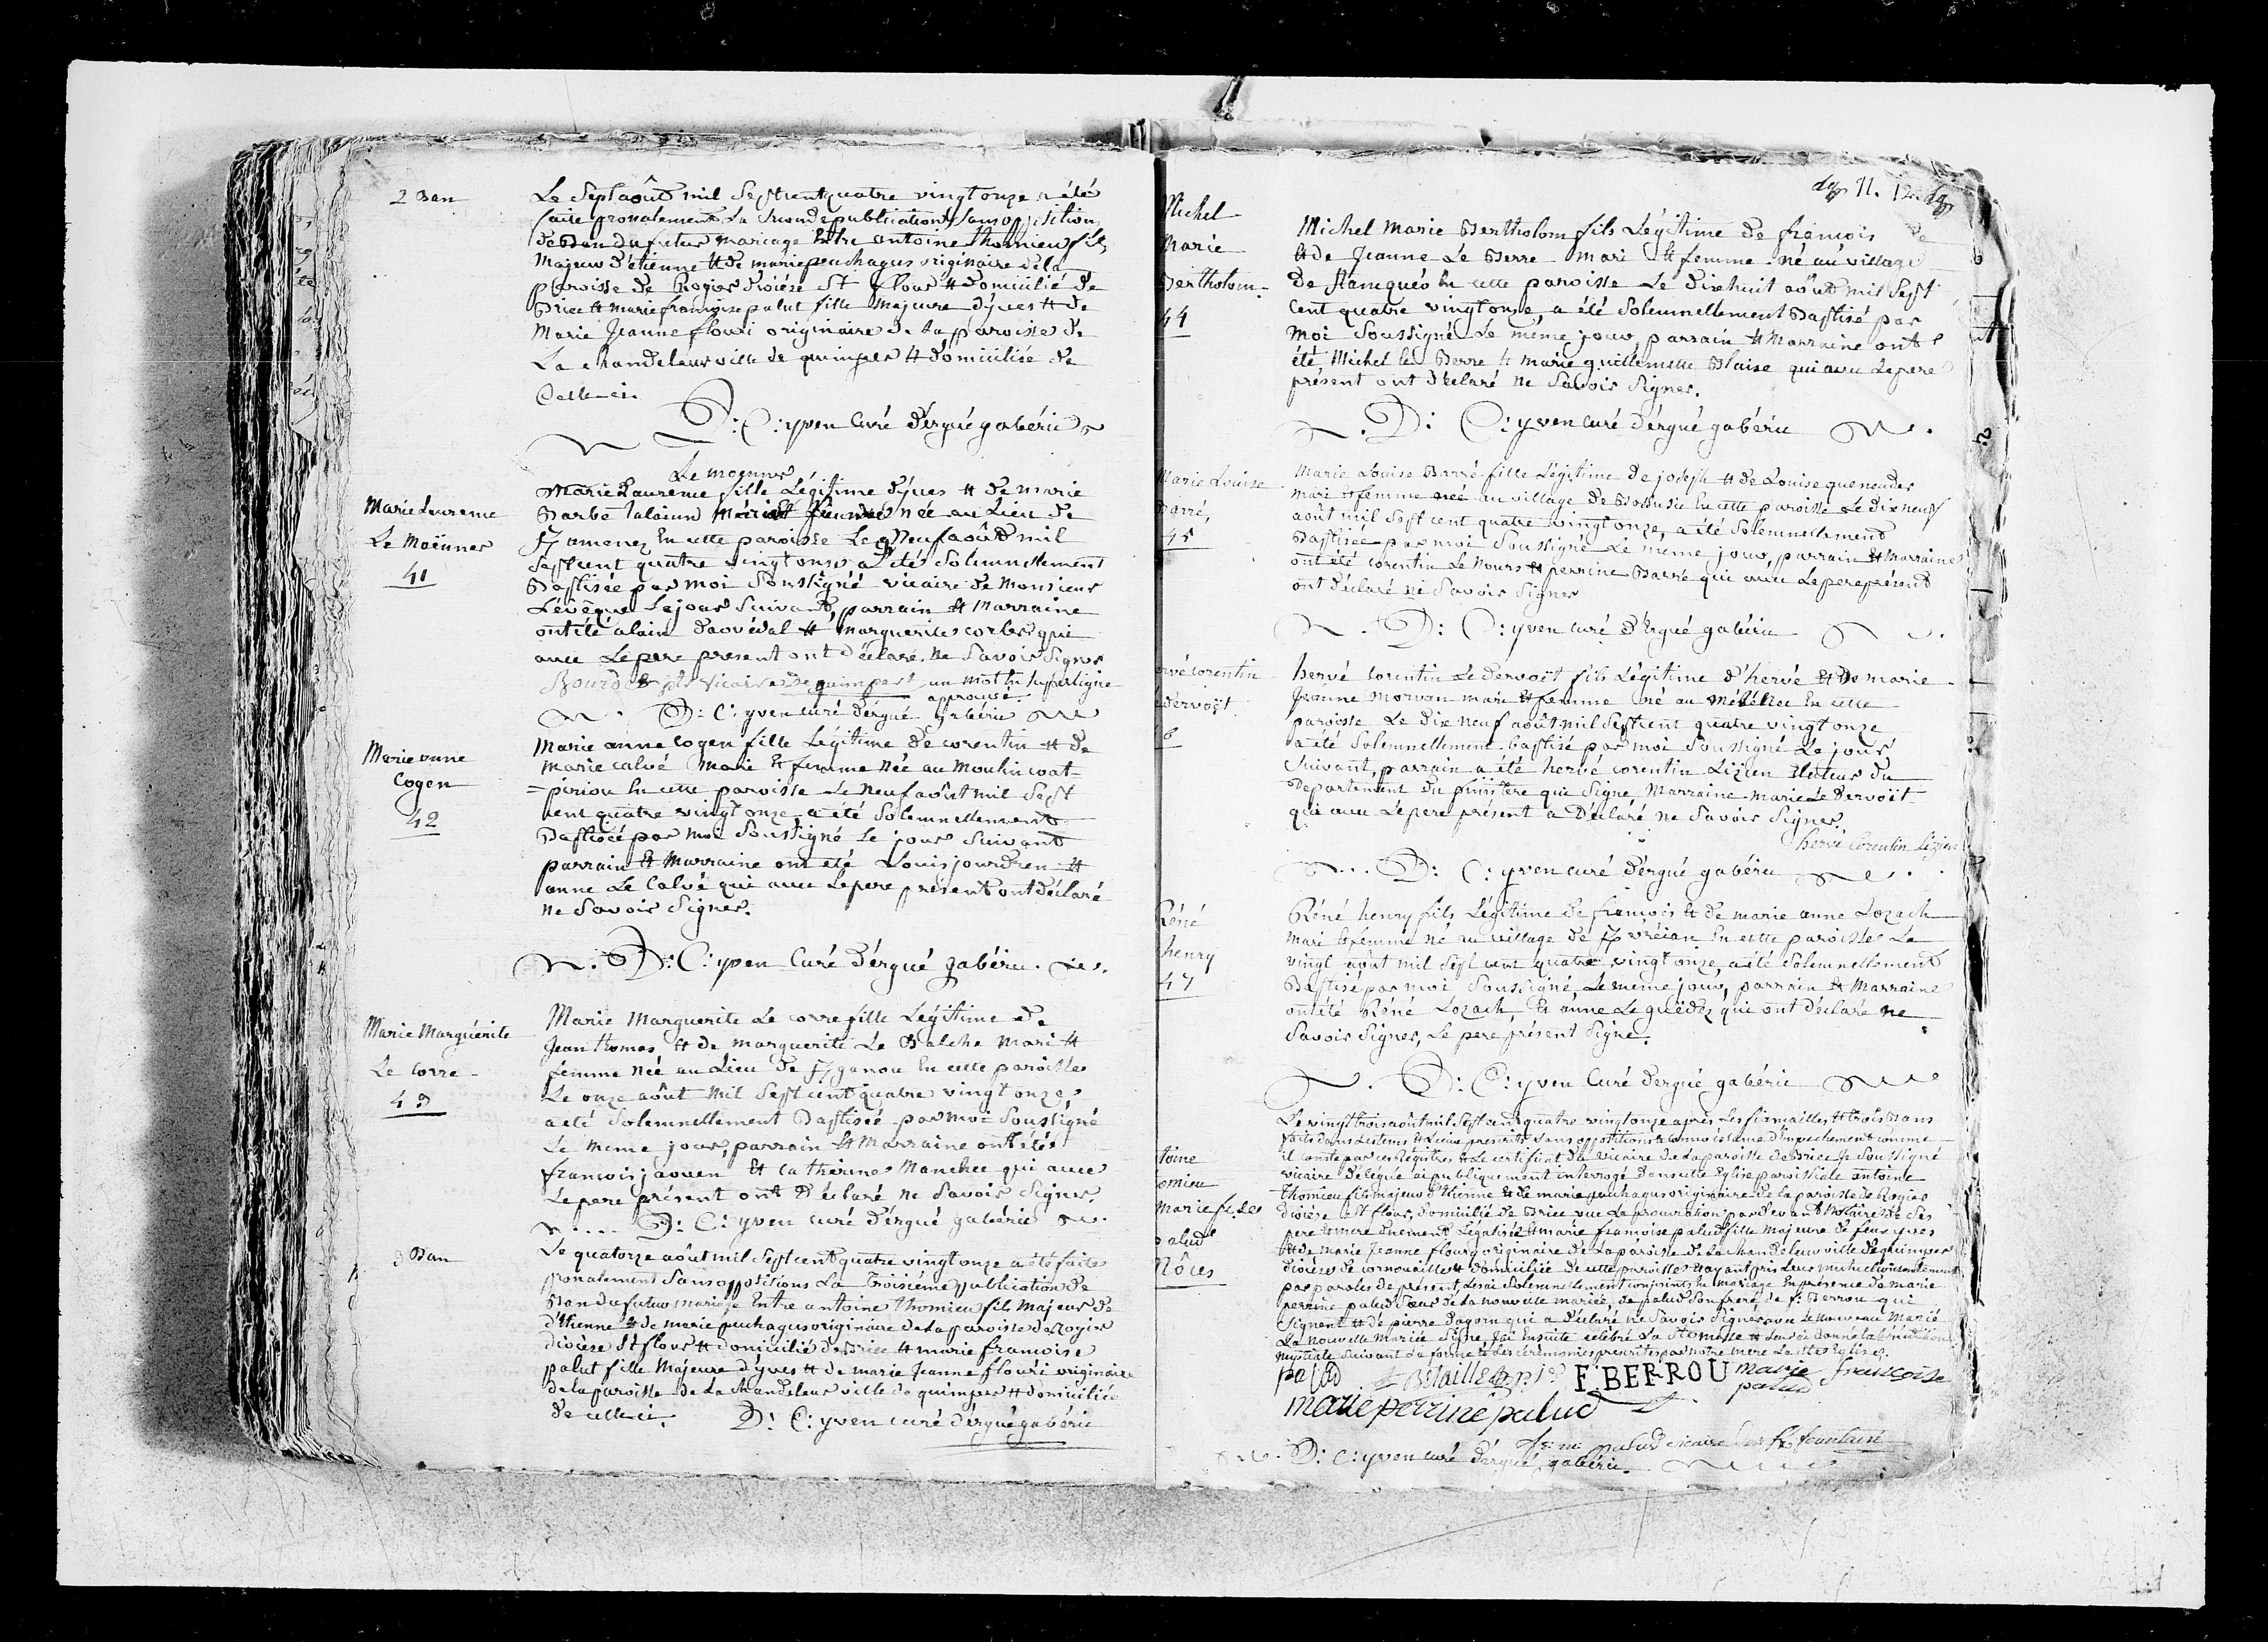 2 Ban
Le Sept août mil Sept cent quatre vingt onze a été
faite pronalement La Seconde publication Sans opposition
de Ban du futur mariage Entre antoine thomieu fils
Majeur d'etienne et de marie peuchagus originaire de la
paroisse de Rogier diocèse St flour et domicilié de
Briec et marie françoise palut fille Majeure d'yves et de
Marie Jeanne flouri originaire de la paroisse de
La chandeleur ville de quimper et domiciliée de
Celle-ci.
D: C: yven Curé d'ergué gabéric
Marie Laurence
Le Moënner
41
Le moenner
Marie Laurence fille Légitime d'yves et de Marie
Barbe née au Lieu de
En cette paroisse Le Neuf août mil
Sept cent quatre vingt onze a été Solemnellement
Baptisée par moi Soussigné vicaire de Monsieur
L'evêque Le jour Suivant, parrain et Marraine
ont été alain et Marguerite corbé qui
avec Le pere present ont déclaré Ne Savoir Signer
vicaire de quimper un mot En Superligne
approuvé
D: C: yven curé d'ergué gabéric
Marie anne
Cogen
42
Marie anne Cogen fille Légitime de corentin et de
Marie calvé Mari et femme Née au Moulin coat-
=piriou En cette paroisse Le Neuf août mil Sept
cent quatre vingt onze, a été Solemnellement
Baptisée par moi Soussigné Le jour Suivant
parrain et Marraine ont été Louis jourdren et
anne Le Calvé qui avec Le pere présent ont déclaré
Ne Savoir Signer.
D: C: yven Curé d'ergué gabéric
Marie Marguérite
Le Corre
43
Marie Marguerite Le corre fille Légitime de
Jean thomas et de marguerite Le Balche Mari et
femme Née au Lieu de En cette paroisse
Le onze août Mil Sept cent quatre vingt onze,
a été Solemnellement Baptisée par moi Soussigné
Le meme jour, parrain et Marraine ont été
francois jaouen Et catherine Manchec qui avec
Le pere présent ont Déclaré ne Savoir Signer.
D: C: yven curé d'ergué gabéric
3 Ban
Le quatorze août mil Sept cent quatre vingt onze a été faite
pronalement Sans oppositions La troisième publication de
Ban du futur mariage Entre antoine thomieu fils Majeur de
d'etienne et de marie peuchagus originaire de la paroisse de Rogier
diocèse St flour et domicilié de Briec et marie francoise
palut fille Majeure d'yves et de marie Jeanne flouri originaire
de la paroisse de La chandeleur ville de quimper et domiciliée
de celle ci. D: C: yven curé d'ergué gabéric
11. 12
Michel
Marie
Bertholom
44
Michel Marie Bertholom fils Légitime de françois
et de Jeanne Le Berre Mari et femme né au village
de En cette paroisse Le dix huit août Mil Sept
Cent quatre vingt onze, a été Solemnellement Baptisé par
moi Soussigné Le même jour, parrain et Marraine ont
été Michel Le Berre et marie guillemette Blaise qui avec Le pere
présent ont déclaré ne Savoir Signer.
D: C: yven curé d'ergué gabéric
Marie Louise
Barré,
45
Marie Louise Barré fille Légitime de joseph et de Louise queneuder
Mari et femme née au village de En cette paroisse Le dix neuf
août mil Sept cent quatre vingt onze, a été Solemnellement
Baptisée par moi Soussigné Le meme jour, parrain et Marraine
ont été corentin Le Nours et perrine Barré qui avec Le pere présent
ont déclaré ne Savoir Signer
D: C: yven curé d'Ergué gabéric
ervé corentin
e dervoët
6
hervé corentin Le Dervoët fils Légitime d'hervé et De marie
Jeanne Morvan mari et femme né au En cette
paroisse Le dix neuf août mil Sept cent quatre vingt onze
a été Solemnellement baptisé par moi Soussigné Le jour
Suivant, parrain a été hervé corentin Lizien Electeur du
Departement du finistère qui Signe, Marraine marie Le Dervoët
qui avec Le pere présent a Déclaré ne Savoir Signer.
hervé Corentin Lizien
D: C: yven curé d'ergué gabéric
Réné
henry
47
Réné henry fils Légitime de françois et de marie anne Lozach
Mari et femme né au village de En cette paroisse Le
vingt août mil Sept cent quatre vingt onze, a été Solemnellement
Baptisé par moi Soussigné, Le meme jour, parrain et Marraine
ont été Réné Lozach, Et anne Le guedez qui ont déclaré ne
Savoir Signer, Le pere présent Signe.
D: C: yven Curé d'ergué gabéric
toine
omieu
marie fse
palud
Nôces
Le vingt trois août mil Sept cent quatre vingt onze après Les fiançailles et trois Bans
faits dans Les tems et Lieux prescrits Sans oppositions et connoissance D'empechement comme
il conste par ces Registres et Le certificat du vicaire de La paroisse de Briec Je Soussigné
vicaire délégué ai publiquement interrogé dans cette Eglise paroissiale antoine
thomieu fils majeur d'Etienne Et de marie peuchagus originaire de la paroisse de Rogier
diocése St flour, domicilié de Briec vue La procuration par devant Notaire de Ses
pere et mere duement Légalisée et marie françoise palud fille Majeure de feus yves
et de marie Jeanne floury originaire de la paroisse de la chandeleur ville de quimper
diocése de cornouaille et domiciliée de cette paroisse Et ayant pris Leur mutuel consentement
par paroles de présent, Les ai Solemnellement conjoints En mariage En présence de marie
perrine palud Sœur de la nouvelle mariée, de palud Son frere, de f: Berrou qui
Signent et de pierre Dagorn qui a déclaré ne Savoir Signer avec Le nouveau Marié
La nouvelle Mariée Signe, J'ai Ensuite célébré La Ste messe et Leur ai donné la bénédiction
nuptiale Suivant La forme et Les cérémonies prescrites par notre mere La Ste Eglise.
palud F. BERROU marie francoise
palud
marie perrine palud
palud vicaire
D: C: yven curé d'ergué gabéric.